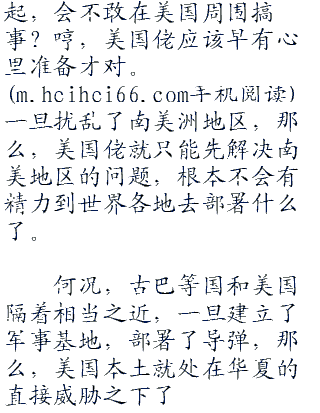 起，会不敢在美国周围搞
事？哼，美国佬应该早有心
里准备才对。
(m.hcihci66.com手机阅读)
一旦扰乱了南美洲地区，那
么，美国佬就只能先解决南
美地区的问题，根本不会有
精力到世界各地去部署什么
了。
何况，古巴等国和美国
隔着相当之近，一旦建立了
军事基地，部署了导弹，那
么，美国本土就处在华夏的
直接威胁之下了